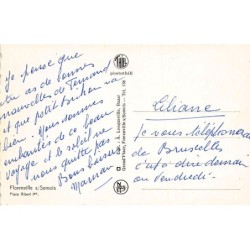 Je pense que
tu as de bonnes
nouvelles de Fernand
et que petit
va bien. Nous sommes
enchantés de ce beau
voyage et le soleil ne
nous quitte pas
Bons baisers
Maman
Florenville s/Semois
Place Albert Ier.
Liliane
Je vous téléphonerai
de Bruxelles
c'est à dire demain
ou vendredi.